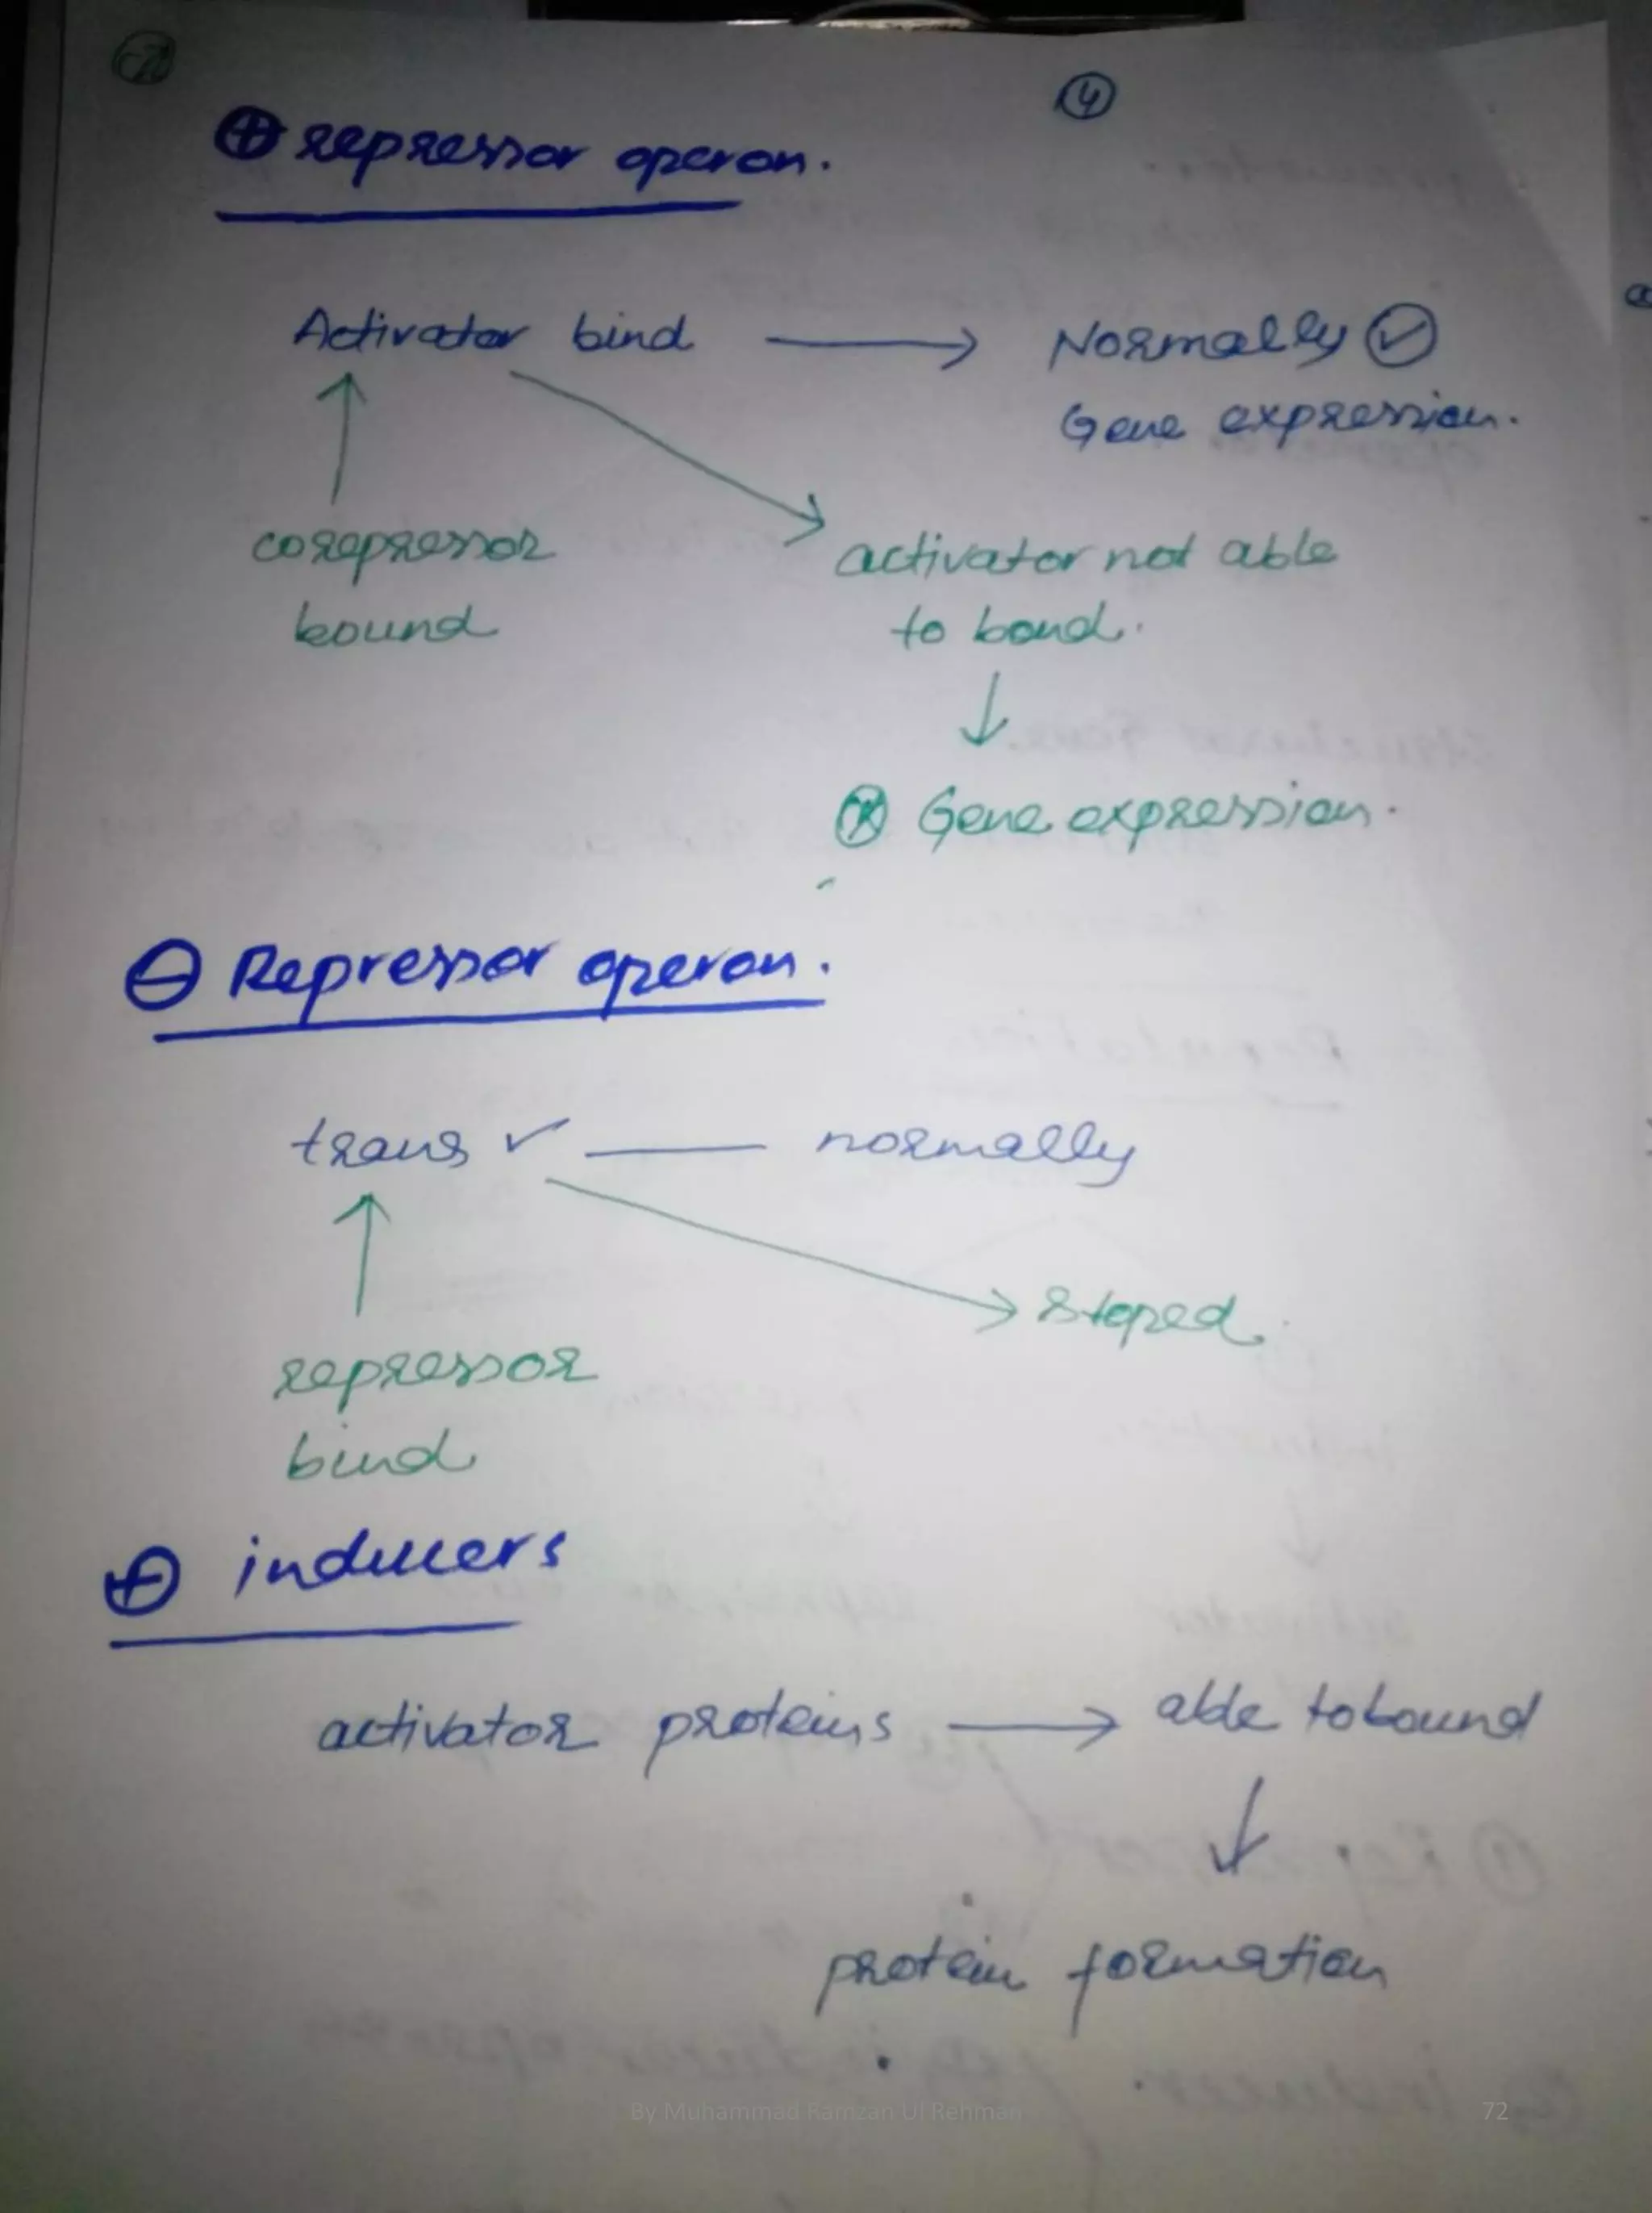 ④
⊕ repressor operon.
Activator bind → Normally ✓
Gene expression.
corepressor
bound
activator not able
to bond.
↓
ⓧ Gene expression.
⊖ Repressor operon.
trans ✓ — normally
stoped.
repressor
bind
⊕ inducers
activator proteins → able to bound
↓
protein formation
By Muhammad Ramzan Ul Rehman
72